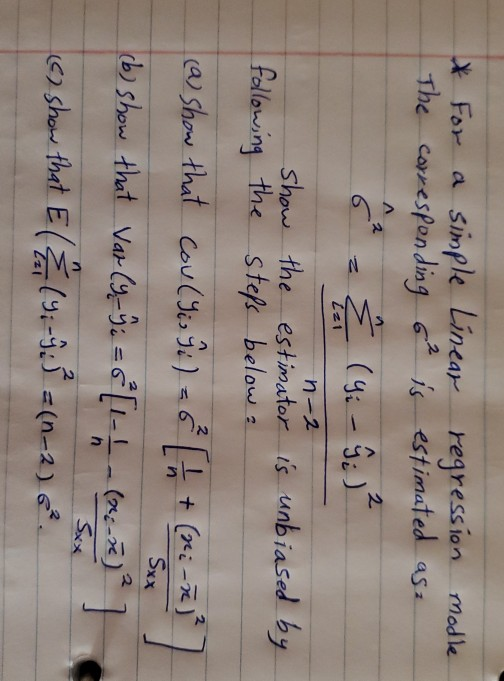 * For a simple Linear regression modle
The corresponding σ² is estimated as:
σ̂² = Σᵢ₌₁ⁿ (yᵢ - ŷᵢ)² / n-2
Show the estimator is unbiased by
following the steps below:
(a) Show that Cov(yᵢ, ŷᵢ) = σ² [1/n + (xᵢ - x̄)² / Sxx]
(b) Show that Var(yᵢ - ŷᵢ = σ² [1 - 1/n - (xᵢ - x̄)² / Sxx]
(c) Show that E(Σᵢ₌₁ⁿ (yᵢ - ŷᵢ)² = (n-2) σ².